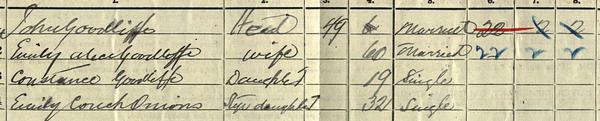 1. 2. 3. 4. 5. 6. 7. 8.
John Goodliffe Head 49 Married 22 2 2
Emily Alice Goodliffe Wife 60 Married 22
Constance Goodliffe Daughter 19 Single
Emily Couch Onions Step daughter 32 Single